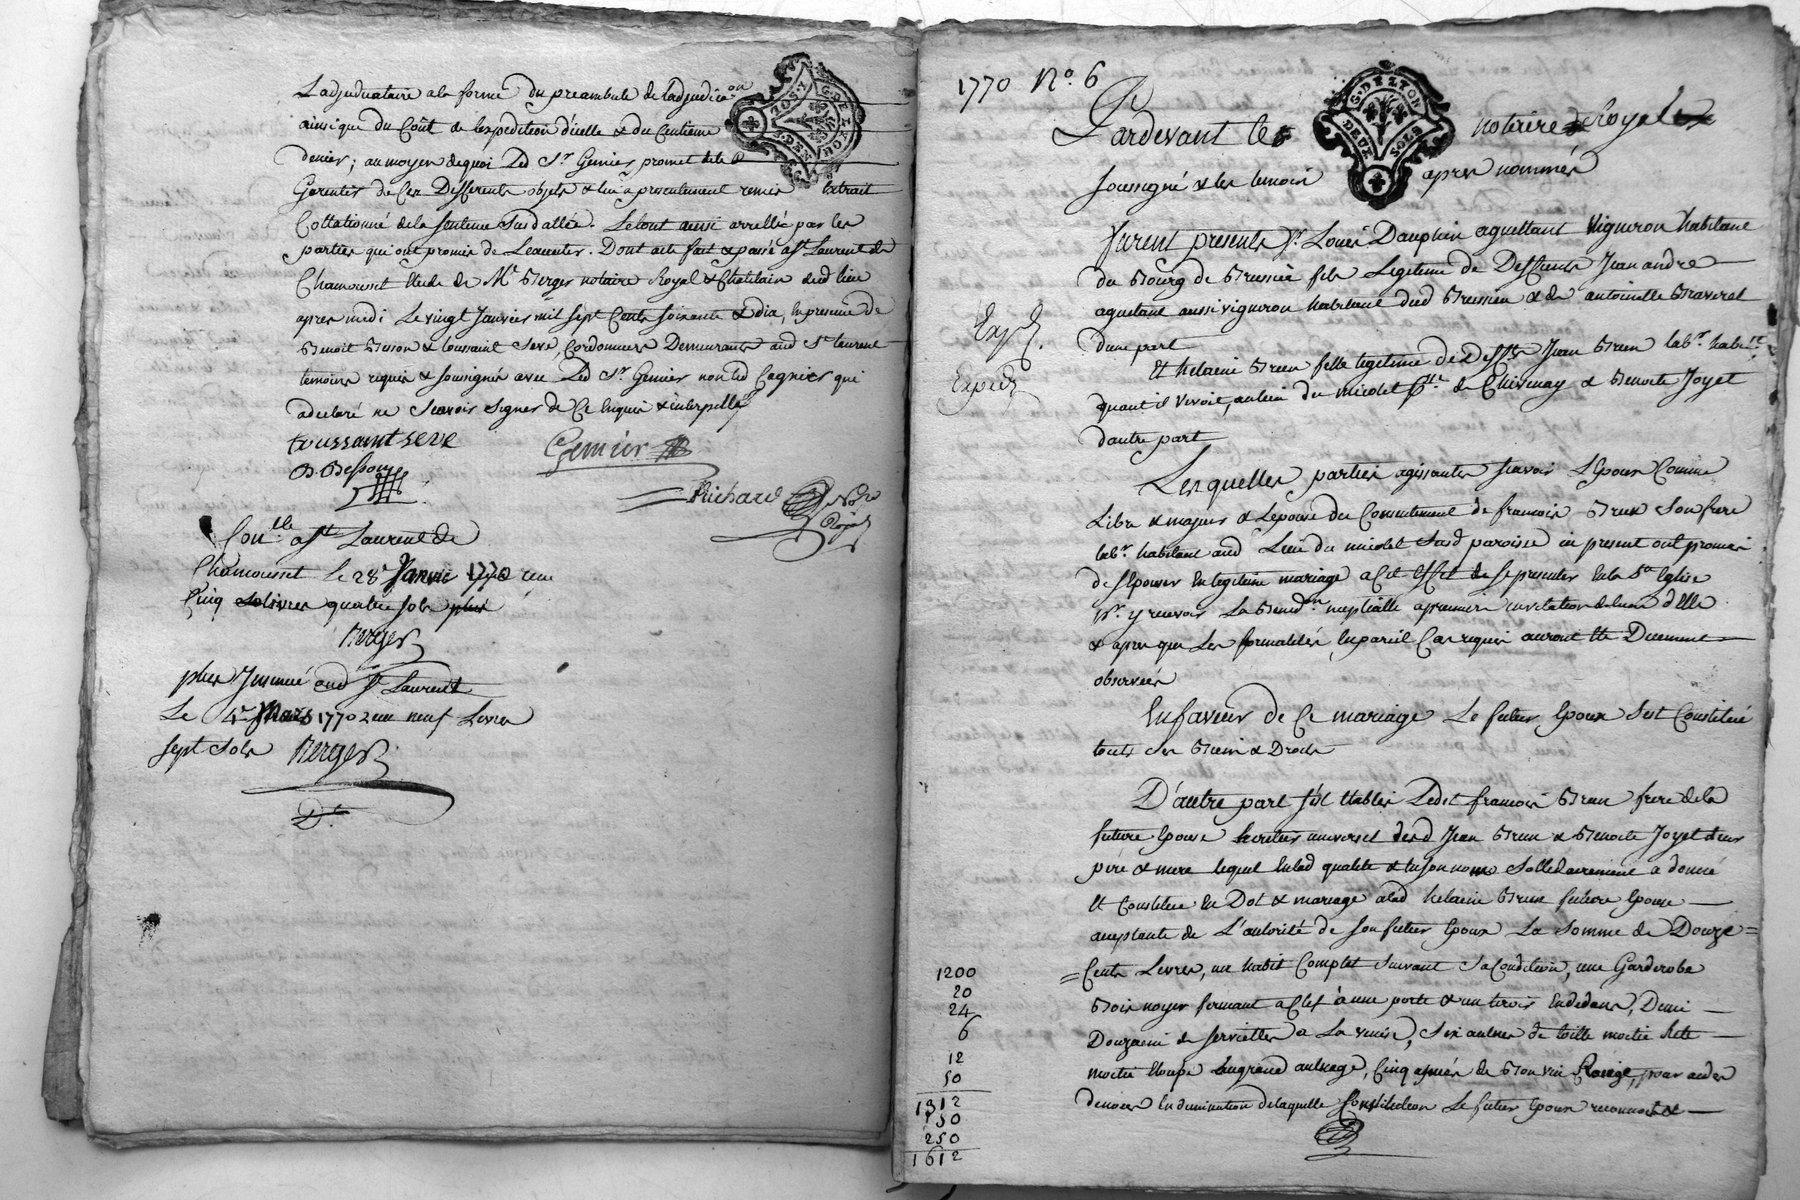 Ladjudicataire a la forme du preambule de ladjudica.on
ainsi que du Coût de lexpedition dicelle & du Centieme
denier; au moyen de quoi Led Sr. Genier promet de la
Garentir de Ces Differents objets & lui a presentement remis extrait
Collationné de la sentence Susdattée. Letout ainsi arretté par les
parties qui ont promis de Lexecuter. Dont acte fait & passé a St Laurent de
Chamousset Etude de Me Berger notaire Royal & Chatelain dud lieu
apres midi Le vingt Janvier mil sept Cents soixante & dix, En presence de
Benoit Besson & toussaint Seve, Cordonniers Demeurants aud St. Laurent
temoins requis & soussignés avec Led Sr. Genier non led Cagnier qui
adeclaré ne Scavoir signer de Ce Enquis & interpellé
toussaint seve
Genier
B. Besson
Richard Nore
Royal
Con.lle a St Laurent de
Chamousset le 28e Janvie 1770 reçu
Cinq livres quatre sols
Berger
plus Insinué aud St Laurent
Le 4e Mars 1770 reçu neuf Livres
sept sols Berger
1770 No. 6
G. DE LYON
DEUX SOLS
Pardevant le notaire Royal
soussigné & les temoins apres nommés
furent presents Sr. Louis Dauphin aquettant Vigneron habitant
du Bourg de Bressieu fils Legitime de Deffunts Jean andré
aquetant aussi vigneron habitant dud Bressieu & de antoinette Braverel
dune part
Expd.
Et helaine Brun fille legitime de Deffts Jean Brun labr. habitt
Exped
quant il vivoit, au lieu du miolet psse de Chevinay & Benoite Joyet
dautre part
Lesquelles parties agissantes scavoir LEpoux Comme
Libre & majeur & Lepouse du Consentement de francois Brun son frere
labr. habitant aud Lieu du miolet Susd paroisse ici present ont promis
de sEpouser En legitime mariage a Cet Effet de se presenter En la Ste Eglise
pr. y recevoir La Bened.on nuptialle a premiere invitation de lun dElle
& apres que Les formalités En pareil Cas requis auront Eté Duement
observées
En faveur de Ce mariage Le futur Epoux s'est Constitué
touts ses Biens & Droits
D'autre part s'est Etabli Ledit francois Brun frere de la
future Epouse heritier universel desd Jean Brun & Benoite Joyet leurs
pere & mere lequel En lad qualité & En son nom Sollidairement a donné
Et Constitué En Dot & mariage alad helaine Brun future Epouse
acceptante de L'autorité de son futur Epoux La Somme de Douze=
=Cents Livres, un habit Complet suivant sa Condition, une Garderobe
Bois noyer fermant a Clef à une porte & un tiroir En dedans, Demi
Douzaine de serviettes a La venise, Six autres de toille moitié Rite
moitié Etoupe En grand aulnage, Cinq asnées de Bon vin Rouge, pour aider
de noces En diminution de laquelle Constitution Le futur Epoux reconnoit &
1200
20
24
6
12
50
1312
150
250
1612